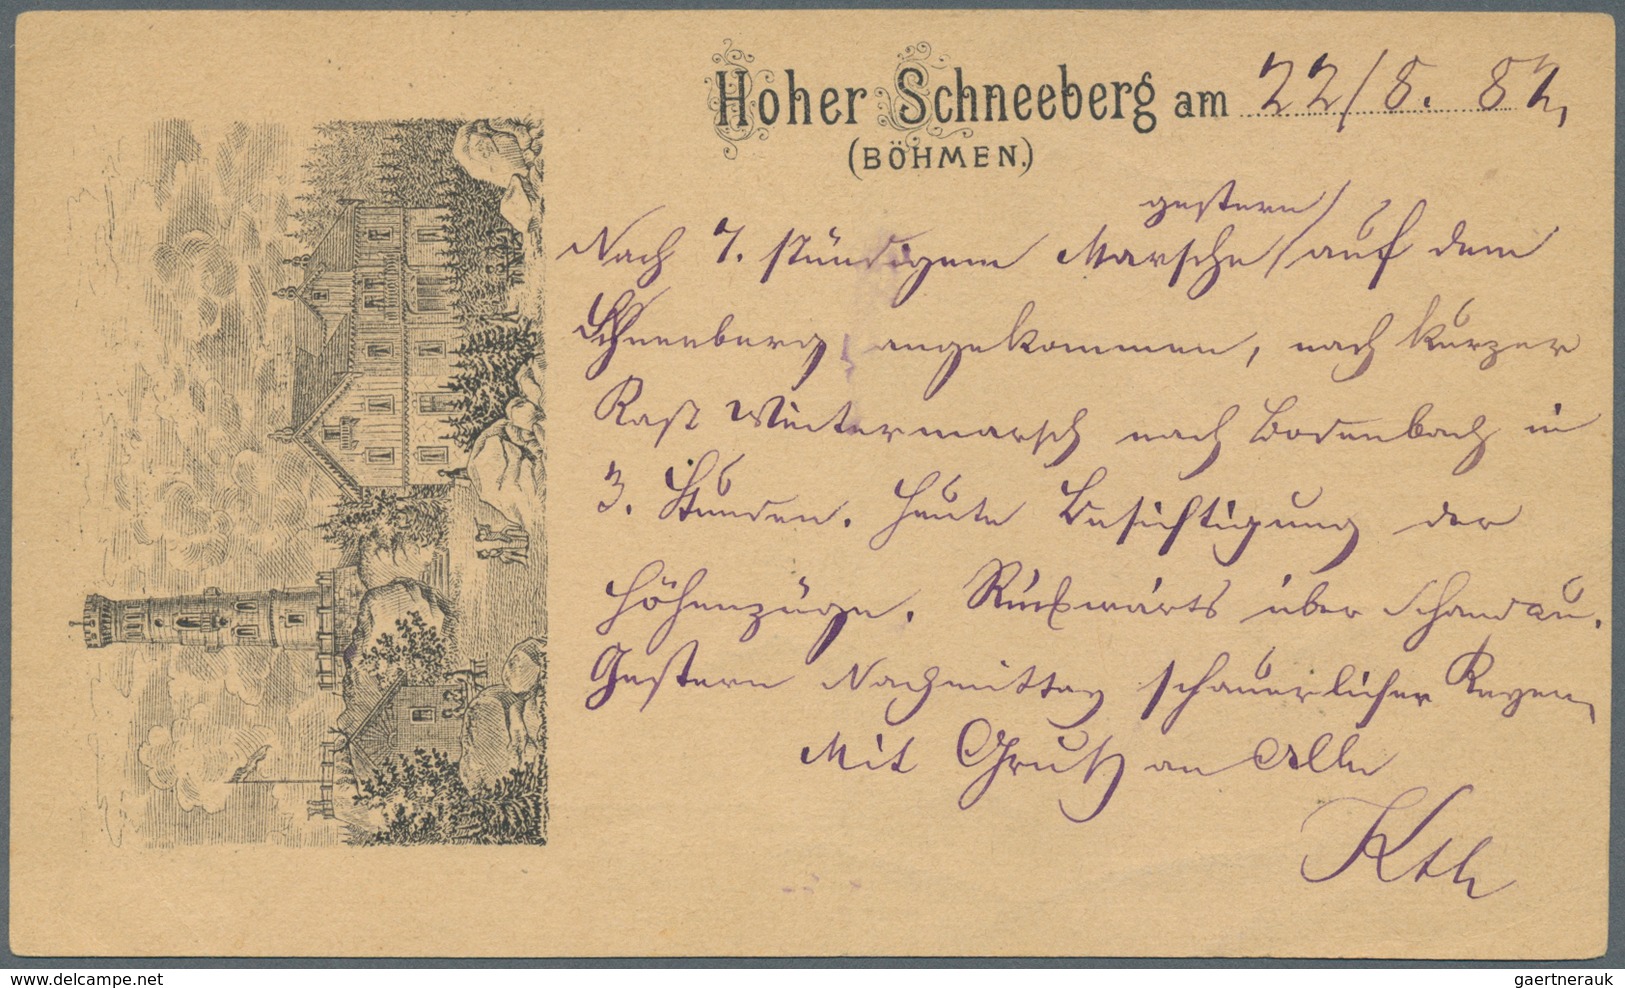 Hoher Schneeberg am 22/8. 82,
(BÖHMEN.)
gestern
Nach 7. stündigem Marsche / auf dem
Schneeberg angekommen, nach kurzer
Rast Weitermarsch nach Bodenbach in
3. Stunden. Heute Besichtigung der
Höhenzüge. Rückwärts über Schandau.
Gestern Nachmittag schauerlicher Regen,
Mit Gruß an Alle
Kth
gaertnerauk